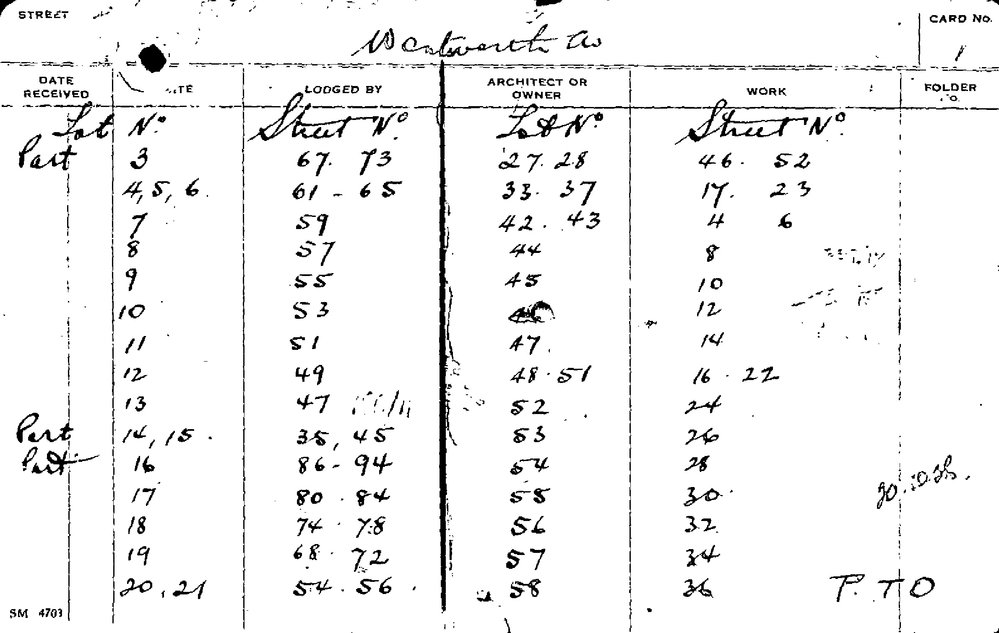 STREET
Wentworth Av
CARD No.
1
DATE RECEIVED LODGED BY ARCHITECT OR OWNER WORK FOLDER
Lot No Street No Lot No Street No
Part 3 67. 73 27. 28 46. 52
4, 5, 6. 61 - 65 33. 37 17. 23
7 59 42. 43 4 6
8 57 44 8
9 55 45 10
10 53 12
11 51 47. 14
12 49 48. 51 16. 22
13 47 52 24
Part 14, 15. 35, 45 53 26
Part 16 86 - 94 54 28
17 80. 84 55 30.
18 74. 78 56 32
19 68. 72 57 34
20, 21 54. 56. 58 36 P. T O
SM 4703